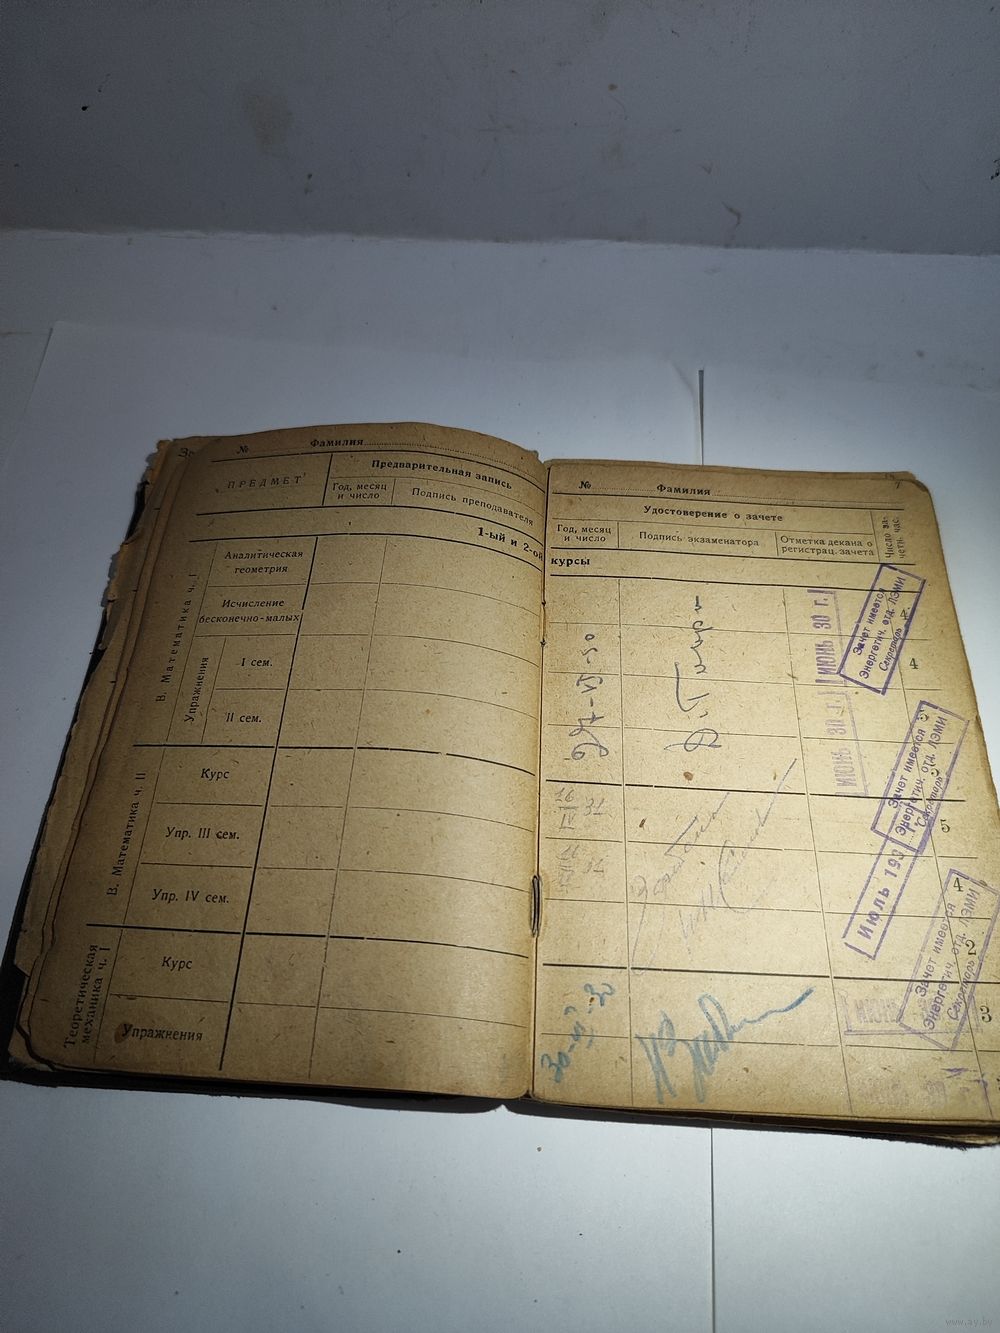 № Фамилия
ПРЕДМЕТ
Предварительная запись
Год, месяц
и число
Подпись преподавателя
1-ый и 2-ой
В. Математика ч. I
Аналитическая
геометрия
Исчисление
бесконечно-малых
Упражнения
I сем.
II сем.
В. Математика ч. II
Курс
Упр. III сем.
Упр. IV сем.
Теоретическая
механика ч. I
Курс
Упражнения
№ Фамилия
7
Удостоверение о зачете
Год, месяц
и число
Подпись экзаменатора
Отметка декана о
регистрац. зачета
Число за-
четн. час.
курсы
27-VI-30
ИЮНЬ 30 г.
Зачет имеется
Энергетич. отд. ЛЭМИ
Секретарь
4
4
ИЮНЬ 30 г.
Зачет имеется
Энергетич. отд. ЛЭМИ
Секретарь
3
16/IV 31
5
Июль 193
4
2
Зачет имеется
Энергетич. отд. ЛЭМИ
Секретарь
ИЮНЬ
3
www.ay.by